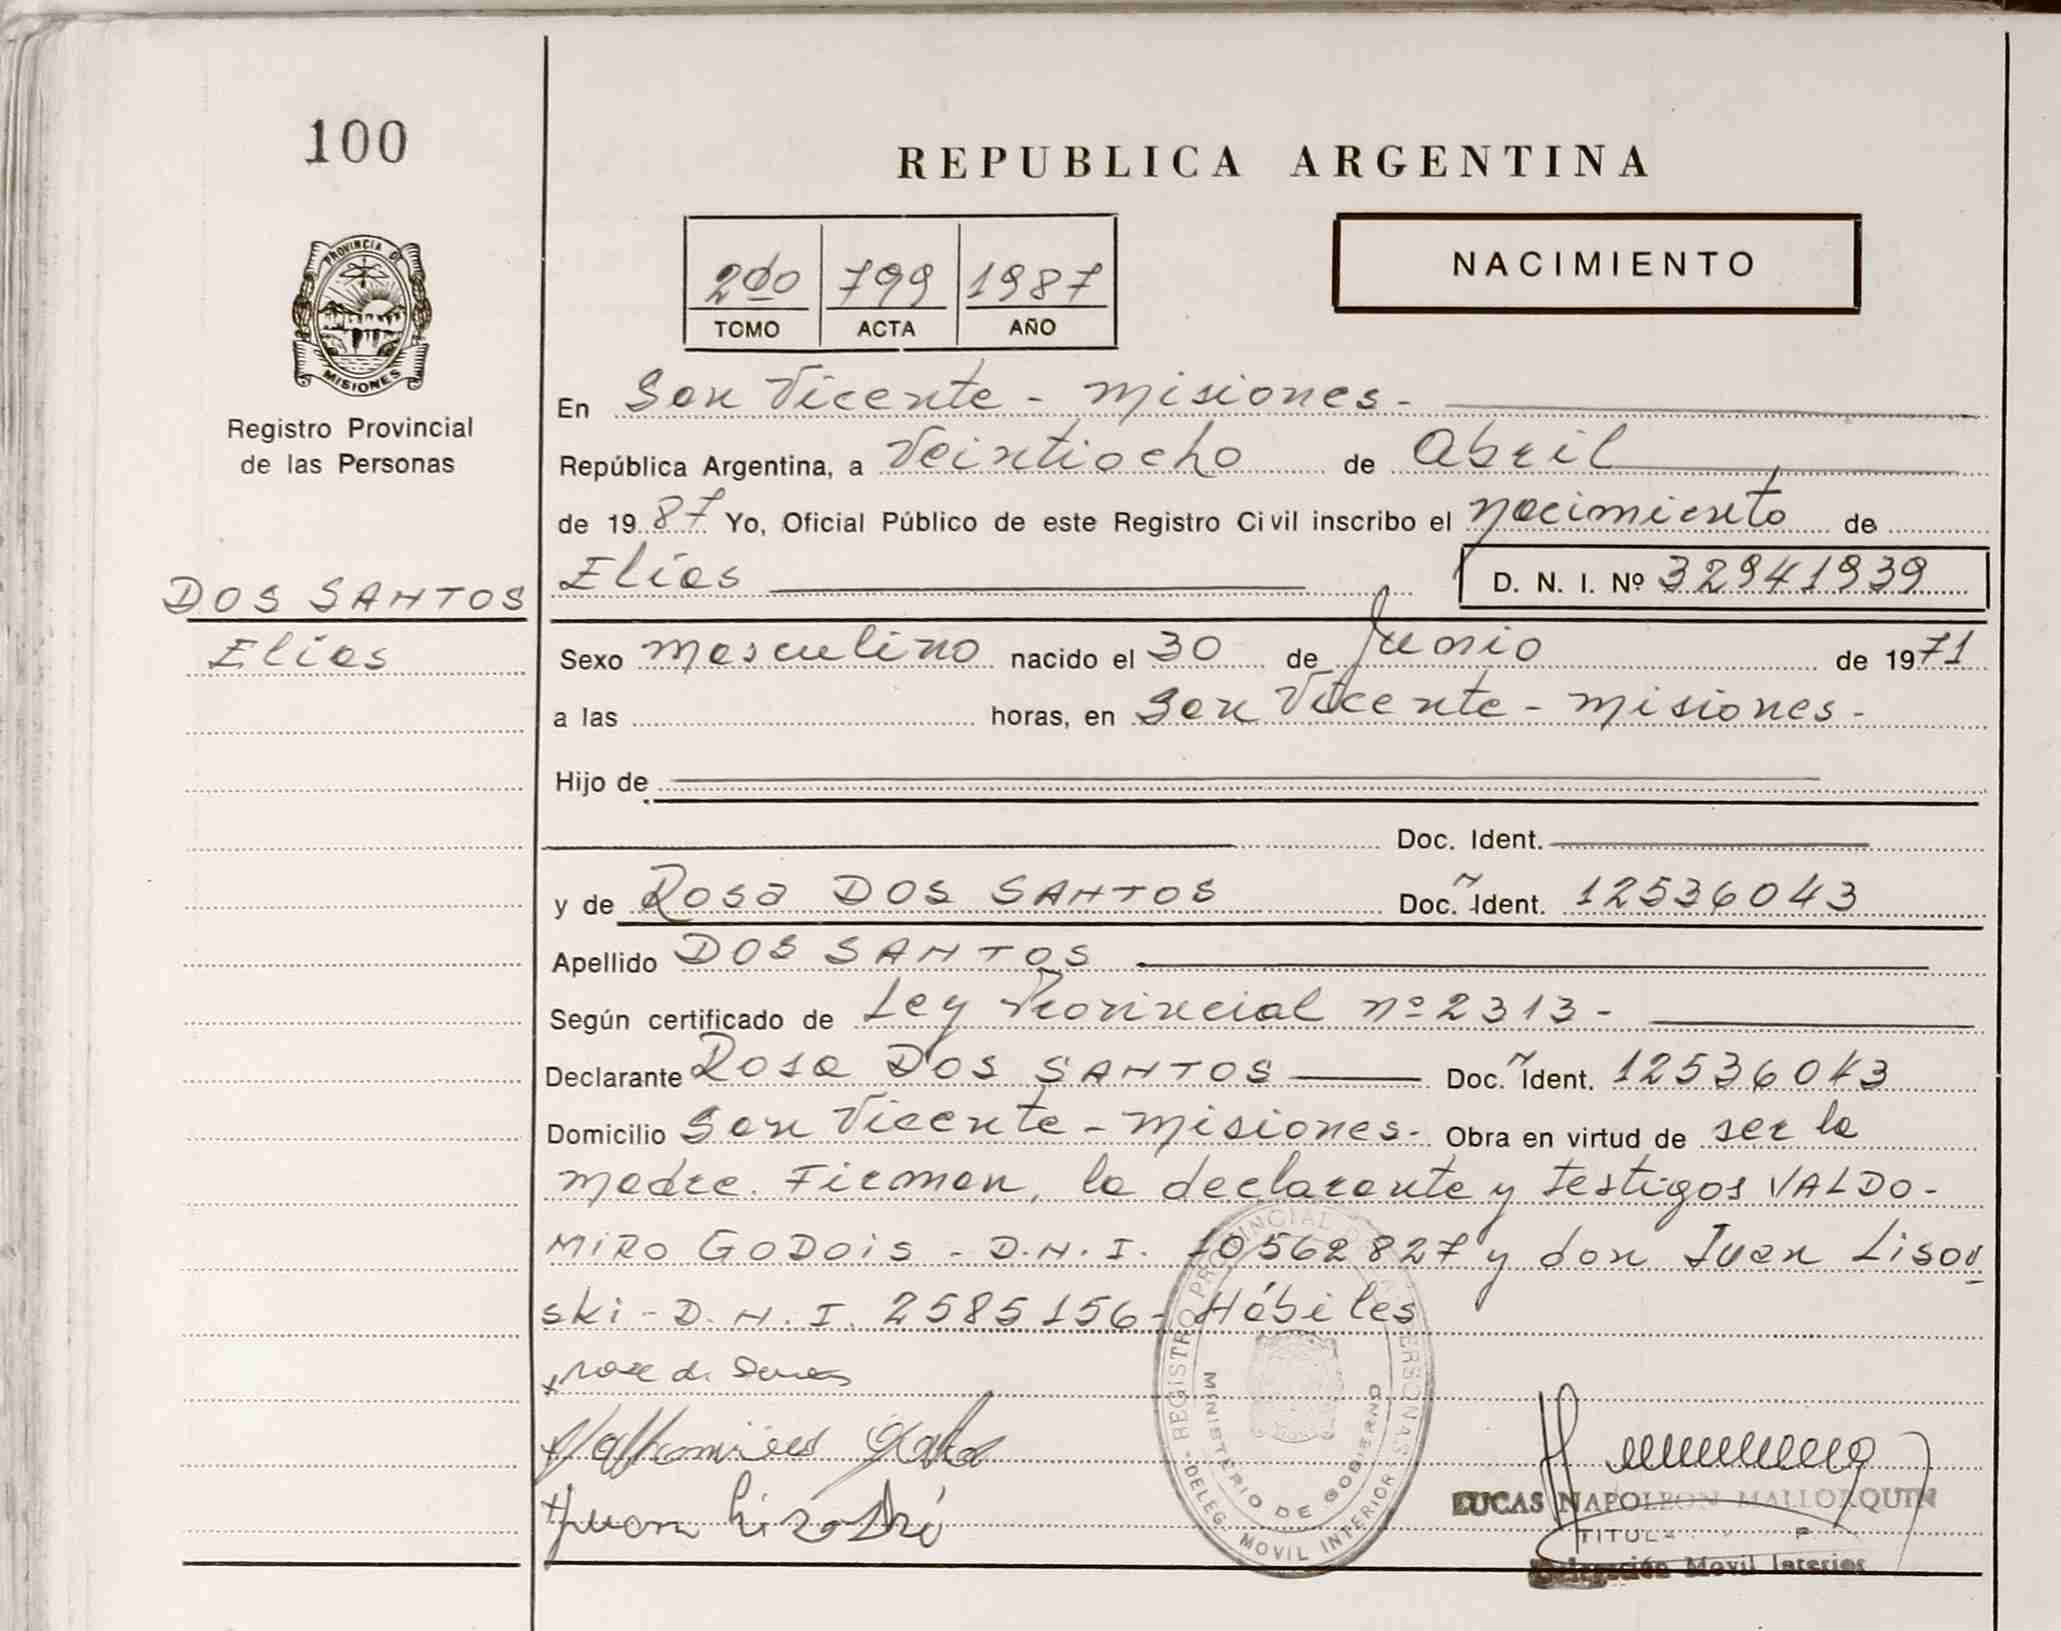 100
REPUBLICA ARGENTINA
NACIMIENTO
2do 799 1987
TOMO ACTA AÑO
PROVINCIA DE
MISIONES
Registro Provincial
de las Personas
En San Vicente - Misiones -
República Argentina, a Veintiocho de Abril
de 1987 Yo, Oficial Público de este Registro Civil inscribo el nacimiento de
DOS SANTOS
Elías
Elías D. N. I. Nº 32941939
Sexo masculino nacido el 30 de Junio de 1971
a las horas, en San Vicente - Misiones -
Hijo de
Doc. Ident.
y de Rosa DOS SANTOS Doc. Ident. 12536043
Apellido DOS SANTOS
Según certificado de Ley Provincial nº 2313 -
Declarante Rosa DOS SANTOS Doc. Ident. 12536043
Domicilio San Vicente - Misiones - Obra en virtud de ser la
madre. Firman, la declarante y testigos VALDO-
MIRO GODOIS - D.N.I. 10562827 y don Juan Lisov
ski - D.N.I. 2585156 - Hábiles
REGISTRO PROVINCIAL DE PERSONAS
MINISTERIO DE GOBIERNO
DELEG. MOVIL INTERIOR
Juan
LUCAS NAPOLEON MALLORQUIN
Delegación Movil Interior